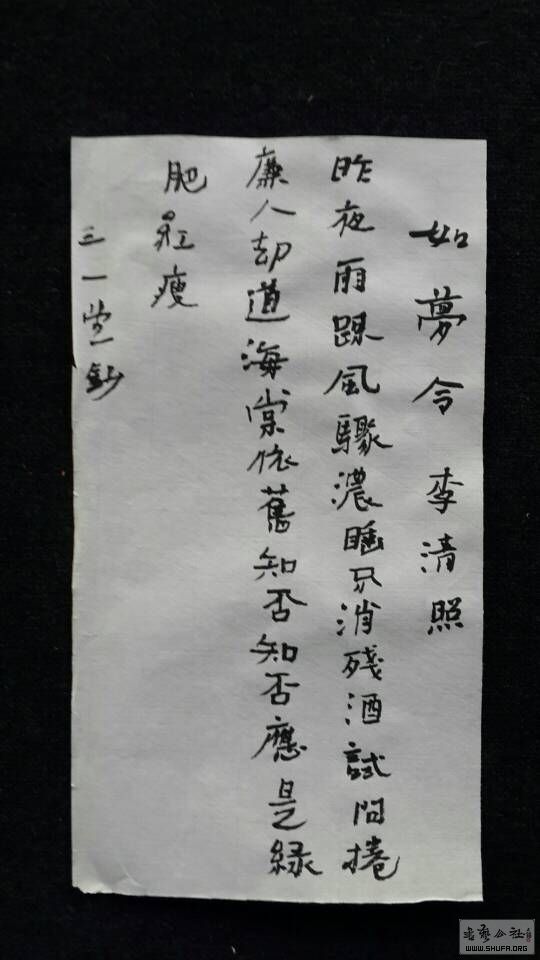 如夢令 李清照
昨夜雨踈風驟濃睡只消殘酒試問捲
廉人却道海棠依舊知否知否應是緑
肥紅瘦
三一堂鈔
WWW.SHUFA.ORG